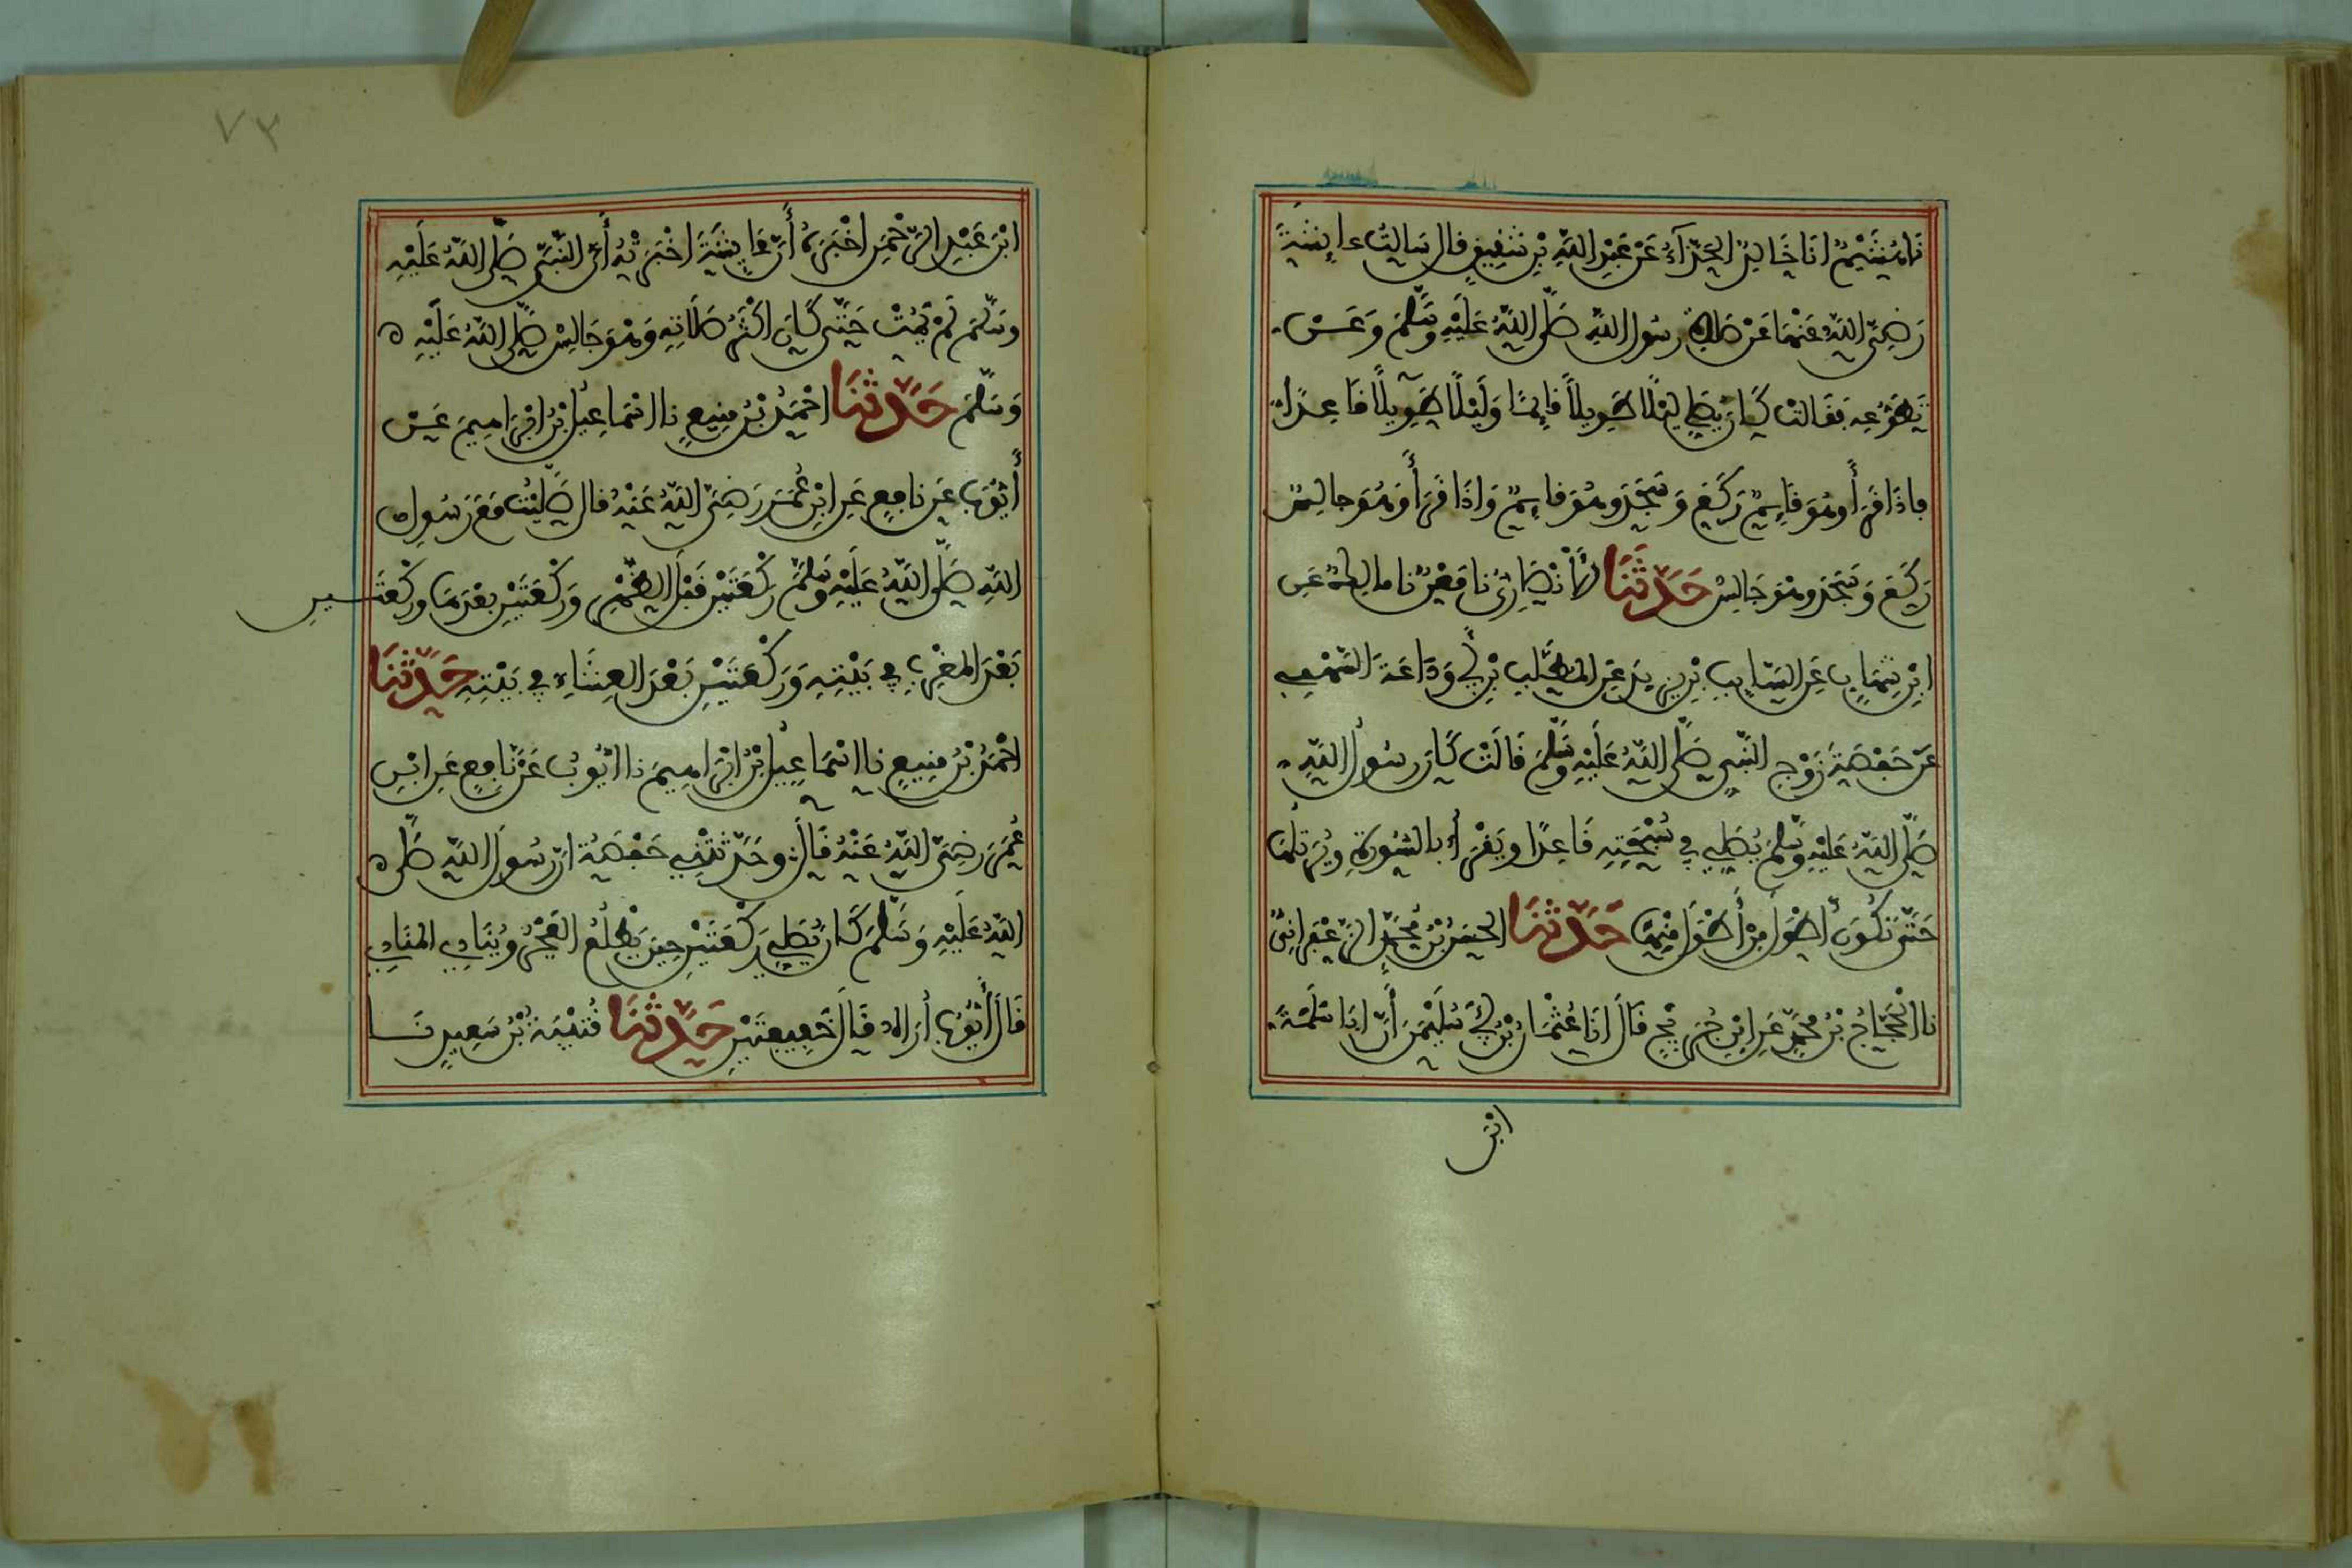 نَا هُشَيْمٌ انَا خَالِدٌ الحَذَّآءُ عَنْ عَبْدِ اللَّهِ بْنِ شَفِيقٍ قال سَالتُ عاىِٕشَةَ
رَضِىَ اللَّهُ عَنْهَا عَنْ صَلاةِ رسُول اللَّهِ صَلَّى اللَّهُ عَلَيْهِ وَسَلَّمَ وَعَنْ
تَطَوُّعِهِ فَقَالت كَانَ يُصَلِّي لَيْلًا طَوِيلًا قَاىِٕمًا وَلَيْلًا طَوِيلًا قَاعِدًا
فإذَا قَرَأَ وهُوَ قَاىِٕمٌ رَكَعَ وَسَجَدَ وهُوَ قَاىِٕمٌ وَاذَا قَرَأَ وَهُوَ جالِسٌ
رَكَعَ وَسَجَدَ وهْوَ جَالِسٌ حَدَّثَنَا الأَنْصَارِىُّ نا مَعْنٌ نا مالِكٌ عَنِ
ابْنِ شِهَابٍ عَنِ السَّايِبِ بْنِ يزيدَ عَنِ المُطَّلِبِ بْنِ أَبِي وَدَاعَةَ السَّهْمِي
عَنْ حَفْصَةَ زَوْجِ النَّبِي صَلَّى اللَّهُ عَلَيْهِ وَسَلَّمَ قَالَتْ كَانَ رسُولُ اللَّهِ
صَلَّى اللَّهُ عَلَيْهِ وسَلَّمَ يُصَلِّي فِي سُبْحَتِهِ قَاعِدًا ويَقْرَأُ بالسُّورَةِ ويُرَتِّلُهَا
حَتَّى تَكُونَ اطْوَلَ مِنْ أَطْوَلَ مِنْهَا حَدَّثَنَا الحَسَنُ بْنُ مُحَمَّدٍ الزَّعْفَرانِىُّ
نا الحَجَّاجُ بْنُ مُحَمَّدٍ عَنِ ابْنِ جُرَيْجٍ قَالَ انَا عُثْمَانُ بْنُ أَبِي سُلَيْمَنَ أَنَّ ابَا سَلَمَةَ
ابْنَ
٧٣
ابْنَ عَبْدِ الرَّحْمَنِ اخْبَرَهُ أَنَّ عَايِشَةَ اخْبَرَتْهُ أَنَّ النَّبِىَّ صَلَّى اللَّهُ عَلَيْهِ
وسَلَّمَ لَمْ يَمُتْ حَتَّى كَانَ اكْثَرُ صَلَاتِهِ وَهْوَ جَالِسٌ صَلَّى اللَّهُ عَلَيْهِ
وَسَلَّمَ حَدَّثَنَا احْمَدُ بْنُ مَنِيعٍ نا اسْمَاعِيلُ بْنُ ابْرَاهِيمَ عَنْ
أَيُّوبَ عَن نافِعٍ عَنِ ابْنِ عُمَرَ رَضِىَ اللَّهُ عَنْهُ قال صَلَّيْتُ مَعَ رَسُولِ
اللَّهِ صَلَّى اللَّهُ عَلَيْهِ وَسَلَّمَ رَكْعَتَيْنِ قَبْلَ الظُّهْرِ وَرَكْعَتَيْنِ بَعْدَهَا ورَكْعَتَيـنِ
بَعْدَ المَغْرِبِ فِي بَيْتِهِ وَرَكْعَتَيْنِ بَعْدَ العِشَاءِ فِي بَيْتِهِ حَدَّثَنَا
احْمَدُ بْنُ مَنِيعٍ نا اسْمَاعِيلُ بْنُ ابْرَاهِيمَ نا ايُّوبُ عَنْ نَافِعٍ عَنِ ابْنِ
عُمَرَ رَضِىَ اللَّهُ عَنْهُ قَالَ وحَدَّثَتْنِي حَفْصَةُ انَّ رسُولَ اللَّهِ صَلَّى
اللَّهُ عَلَيْهِ وَسَلَّمَ كَانَ يُصَلِّي رَكْعَتَيْنِ حِينَ يَطْلُعُ الفَجْرُ ويُنَادِي المُنَادِي
قَالَ أَيُّوبُ أُرَاهُ قَالَ خَفِيفَتَيْنِ حَدَّثَنَا قُتَيْبَةُ بْنُ سَعِيدٍ نَــا